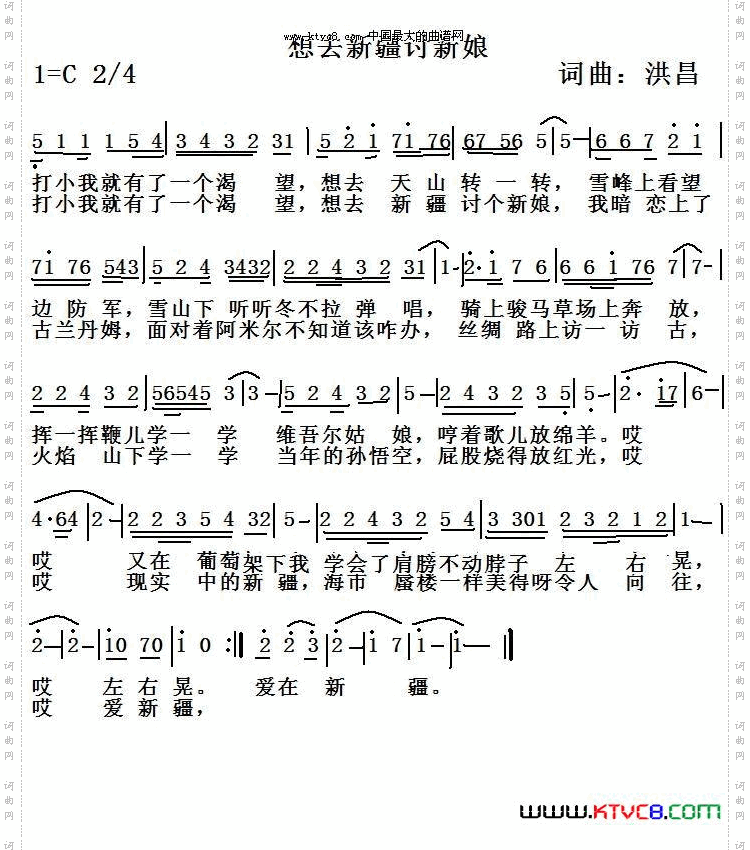 www.ktvc8.com 中国最大的曲谱网
想去新疆讨新娘
1=C 2/4 词曲：洪昌
5 1 1 1 5 4 | 3 4 3 2 31 | 5 2 1 71 76 | 67 56 5 | 5 — | 6 6 7 2 1 |
打小我就有了一个渴 望，想去 天 山 转 一 转， 雪峰上看望
打小我就有了一个渴 望，想去 新 疆 讨个新娘， 我暗 恋上了
71 76 543 | 5 2 4 3432 | 2 2 4 3 2 31 | 1 - | 2· 1 7 6 | 6 6 1 76 7 | 7 - |
边 防 军，雪山下 听听冬不拉 弹 唱， 骑上骏马草场上奔 放，
古兰丹姆，面对着阿米尔不知道该咋办， 丝绸 路上访一 访 古，
2 2 4 3 2 | 56545 3 | 3 — | 5 2 4 3 2 | 5 - | 2 4 3 2 3 5 | 5 - | 2· 17 | 6 —
挥一挥鞭儿学一 学 维吾尔姑 娘，哼着歌儿放绵羊。哎
火焰 山下学一 学 当年的孙悟空，屁股烧得放红光，哎
4· 64 | 2 — | 2 2 3 5 4 32 | 5 - | 2 2 4 3 2 5 4 | 3 3301 2 3 2 1 2 | 1 — |
哎 又在 葡萄架下我 学会了肩膀不动脖子 左 右 晃，
哎 现实 中的新 疆，海市 蜃楼一样美得呀令人 向 往，
2 — | 2 - | 10 70 | 1 0 :|| 2 2 3 | 2 1 7 | 1 — | 1 — ||
哎 左 右 晃。 爱在 新 疆。
哎 爱 新 疆，
www.KTVC8.com
词曲网